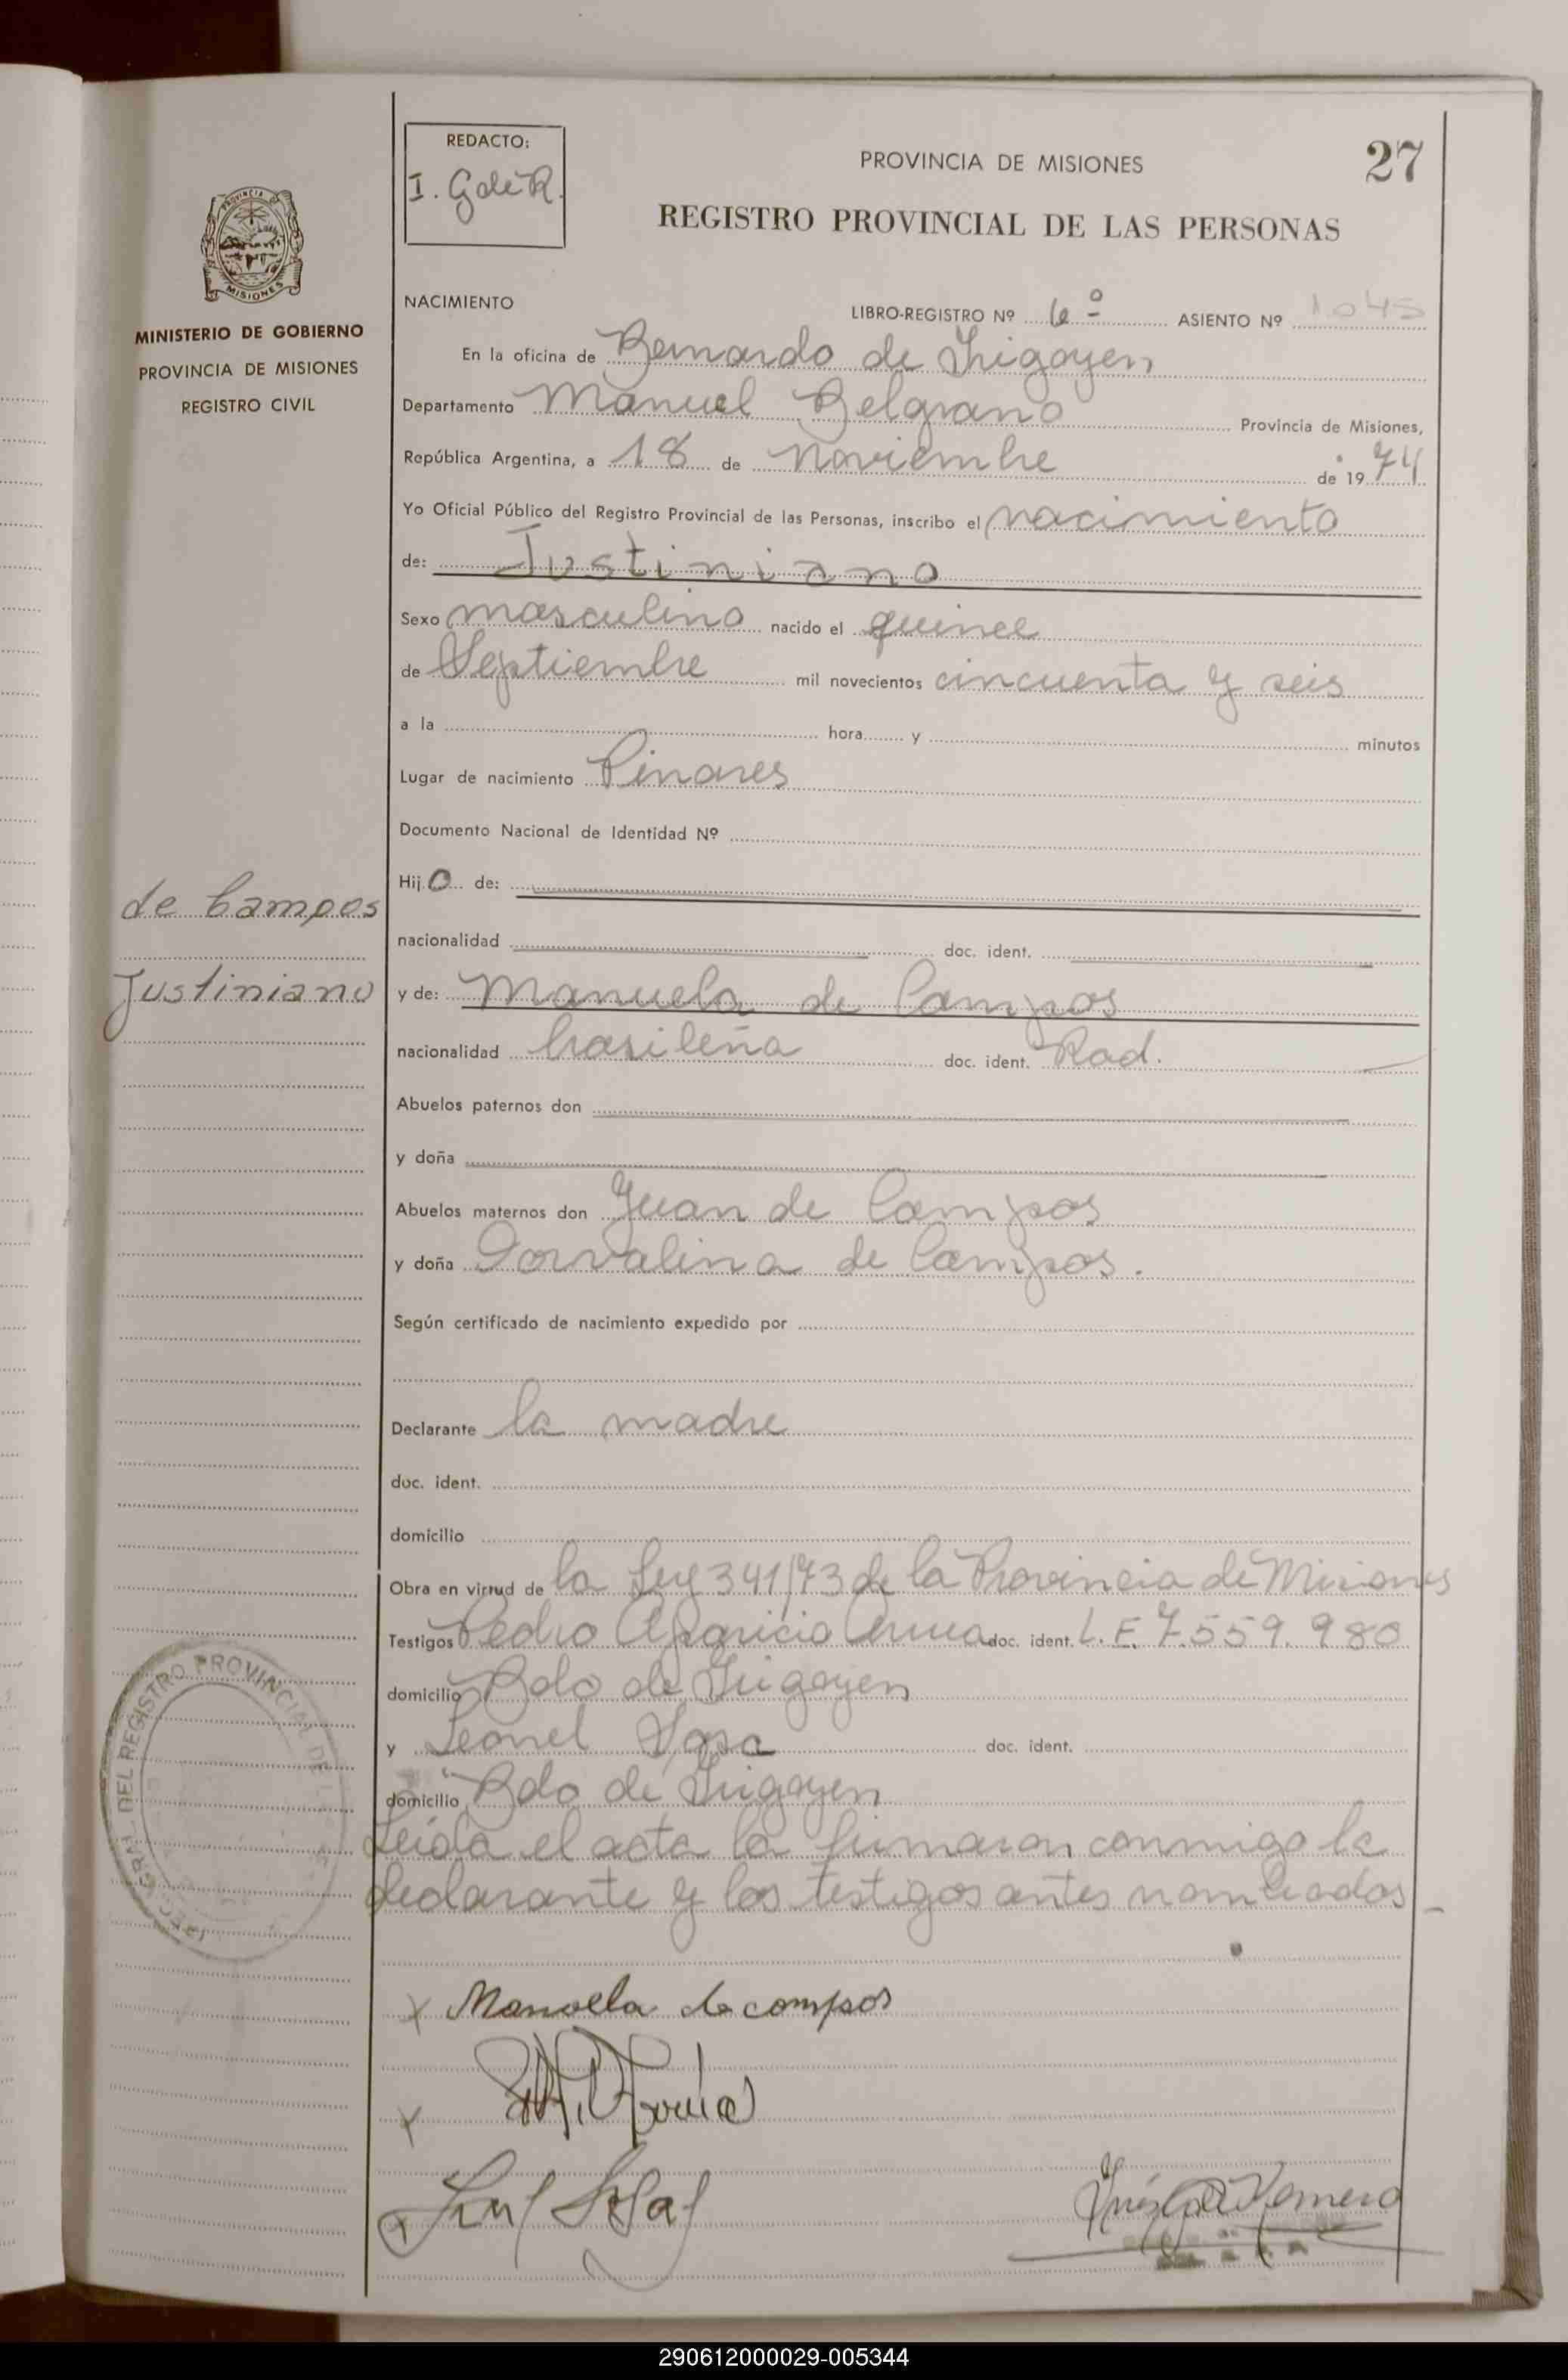 REDACTO:
I. Gale R.
PROVINCIA DE MISIONES
27
REGISTRO PROVINCIAL DE LAS PERSONAS
PROVINCIA
MISIONES
MINISTERIO DE GOBIERNO
PROVINCIA DE MISIONES
REGISTRO CIVIL
NACIMIENTO LIBRO-REGISTRO Nº 6º ASIENTO Nº 1045
En la oficina de Bernardo de Irigoyen
Departamento Manuel Belgrano Provincia de Misiones,
República Argentina, a 18 de Noviembre de 19 74
Yo Oficial Público del Registro Provincial de las Personas, inscribo el nacimiento
de: Justiniano
Sexo masculino nacido el quince
de Septiembre mil novecientos cincuenta y seis
a la hora y minutos
Lugar de nacimiento Pinares
Documento Nacional de Identidad Nº
Hij o de:
de Campos
nacionalidad doc. ident.
Justiniano
y de: Manuela de Campos
nacionalidad brasileña doc. ident. Rad.
Abuelos paternos don
y doña
Abuelos maternos don Juan de Campos
y doña Dorvalina de Campos.
Según certificado de nacimiento expedido por
Declarante la madre
doc. ident.
domicilio
Obra en virtud de la Ley 341/73 de la Provincia de Misiones
Testigos Pedro Aparicio doc. ident. L.E. 7.559.980
domicilio Bdo de Irigoyen
y Leonel Sosa doc. ident.
domicilio Bdo de Irigoyen
Leída el acta la firmaron conmigo la
declarante y los testigos antes nombrados
GRAL. DEL REGISTRO PROVINCIAL DE
x Manoella de campos
x
x
290612000029-005344